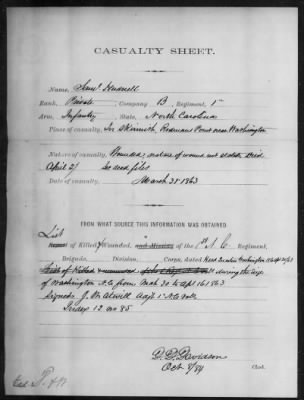 CASUALTY SHEET.
Name, Saml Hudnell
Rank, Private, Company B, Regiment, 1st
Arm, Infantry, State, North Carolina
Place of casualty, In Skirmish Rodmans Point near Washington
Nature of casualty, Wounded, nature of wound not stated. Died
April 2/ See dead files
Date of casualty, March 31 1863
FROM WHAT SOURCE THIS INFORMATION WAS OBTAINED.
List
Report of Killed & Wounded, and Missing of the 1st N.C. Regiment,
Brigade, Division, Corps, dated Head Quarters Washington N.C. Apl 20/63
List of Killed during the siege
of Washington N.C. from Mch 30 to Apl 16 1863
Signed, J. M. Atwill Adjt 1st N.C. Vols
Index 12 no 85
D. D. Davidson
Oct 8/84 Clerk.